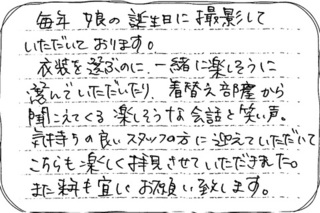 毎年 娘の誕生日に撮影して
いただいております。
衣装を選ぶのに、一緒に楽しそうに
選んでいただいたり、着替え部屋から
聞こえてくる 楽しそうな会話と笑い声。
気持ちの良いスタッフの方に迎えていただいて
こちらも楽しく拝見させていただきました。
また来年も宜しくお願い致します。